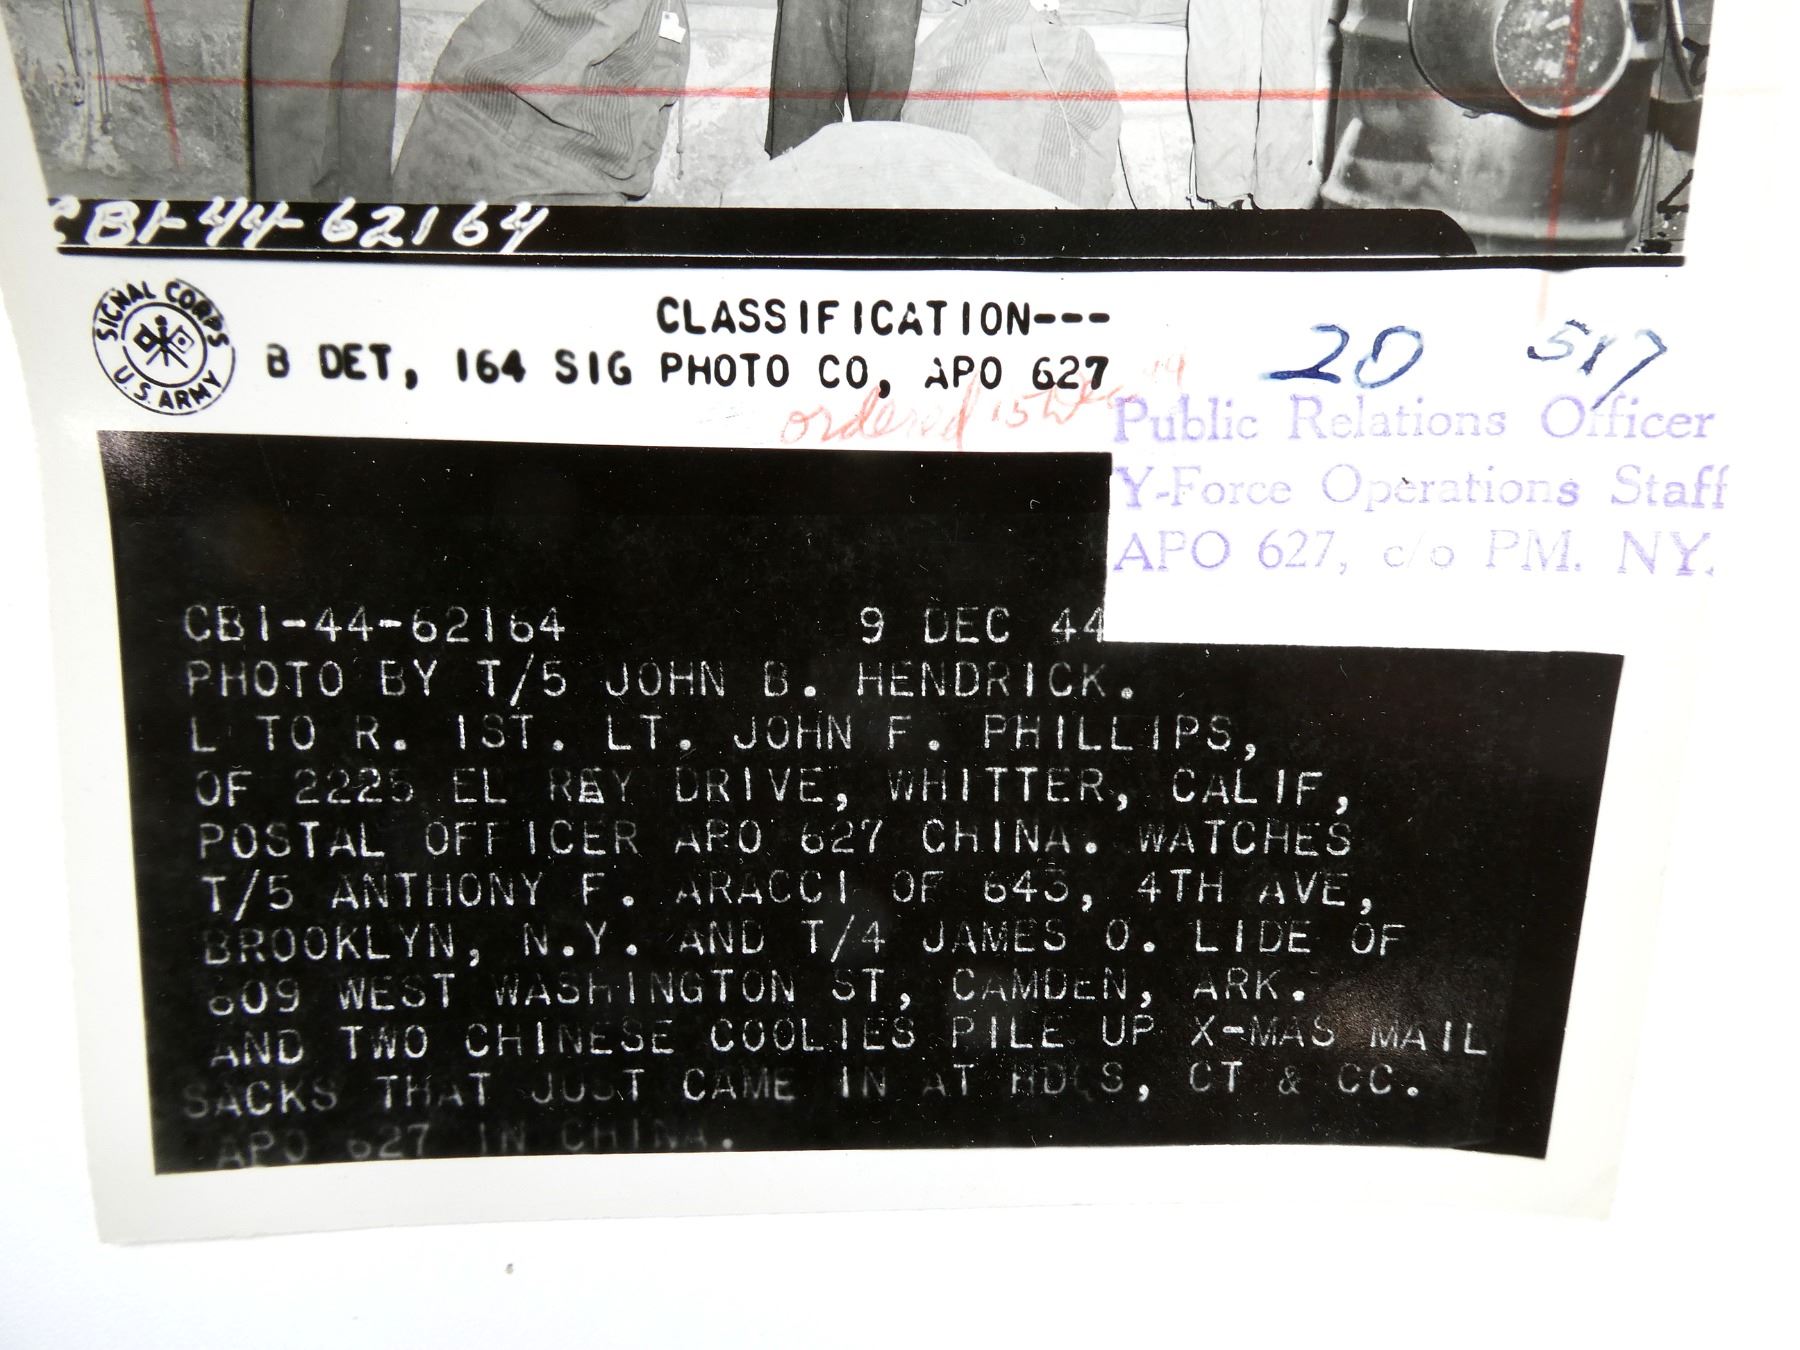 CBI-44-62164
SIGNAL CORPS
U.S. ARMY
CLASSIFICATION---
B DET, 164 SIG PHOTO CO, APO 627
20 517
ordered 15 Dec 44
Public Relations Officer
Y-Force Operations Staff
APO 627, c/o PM. NY.
CBI-44-62164 9 DEC 44
PHOTO BY T/5 JOHN B. HENDRICK.
L TO R. 1ST. LT. JOHN F. PHILLIPS,
OF 2225 EL RAY DRIVE, WHITTER, CALIF,
POSTAL OFFICER APO 627 CHINA. WATCHES
T/5 ANTHONY F. ARACCI OF 643, 4TH AVE,
BROOKLYN, N.Y. AND T/4 JAMES O. LIDE OF
609 WEST WASHINGTON ST, CAMDEN, ARK.
AND TWO CHINESE COOLIES PILE UP X-MAS MAIL
SACKS THAT JUST CAME IN AT HDQS, CT & CC.
APO 627 IN CHINA.